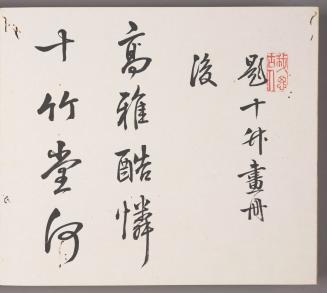 題十竹畫冊
後
高雅酷憐
十竹堂何